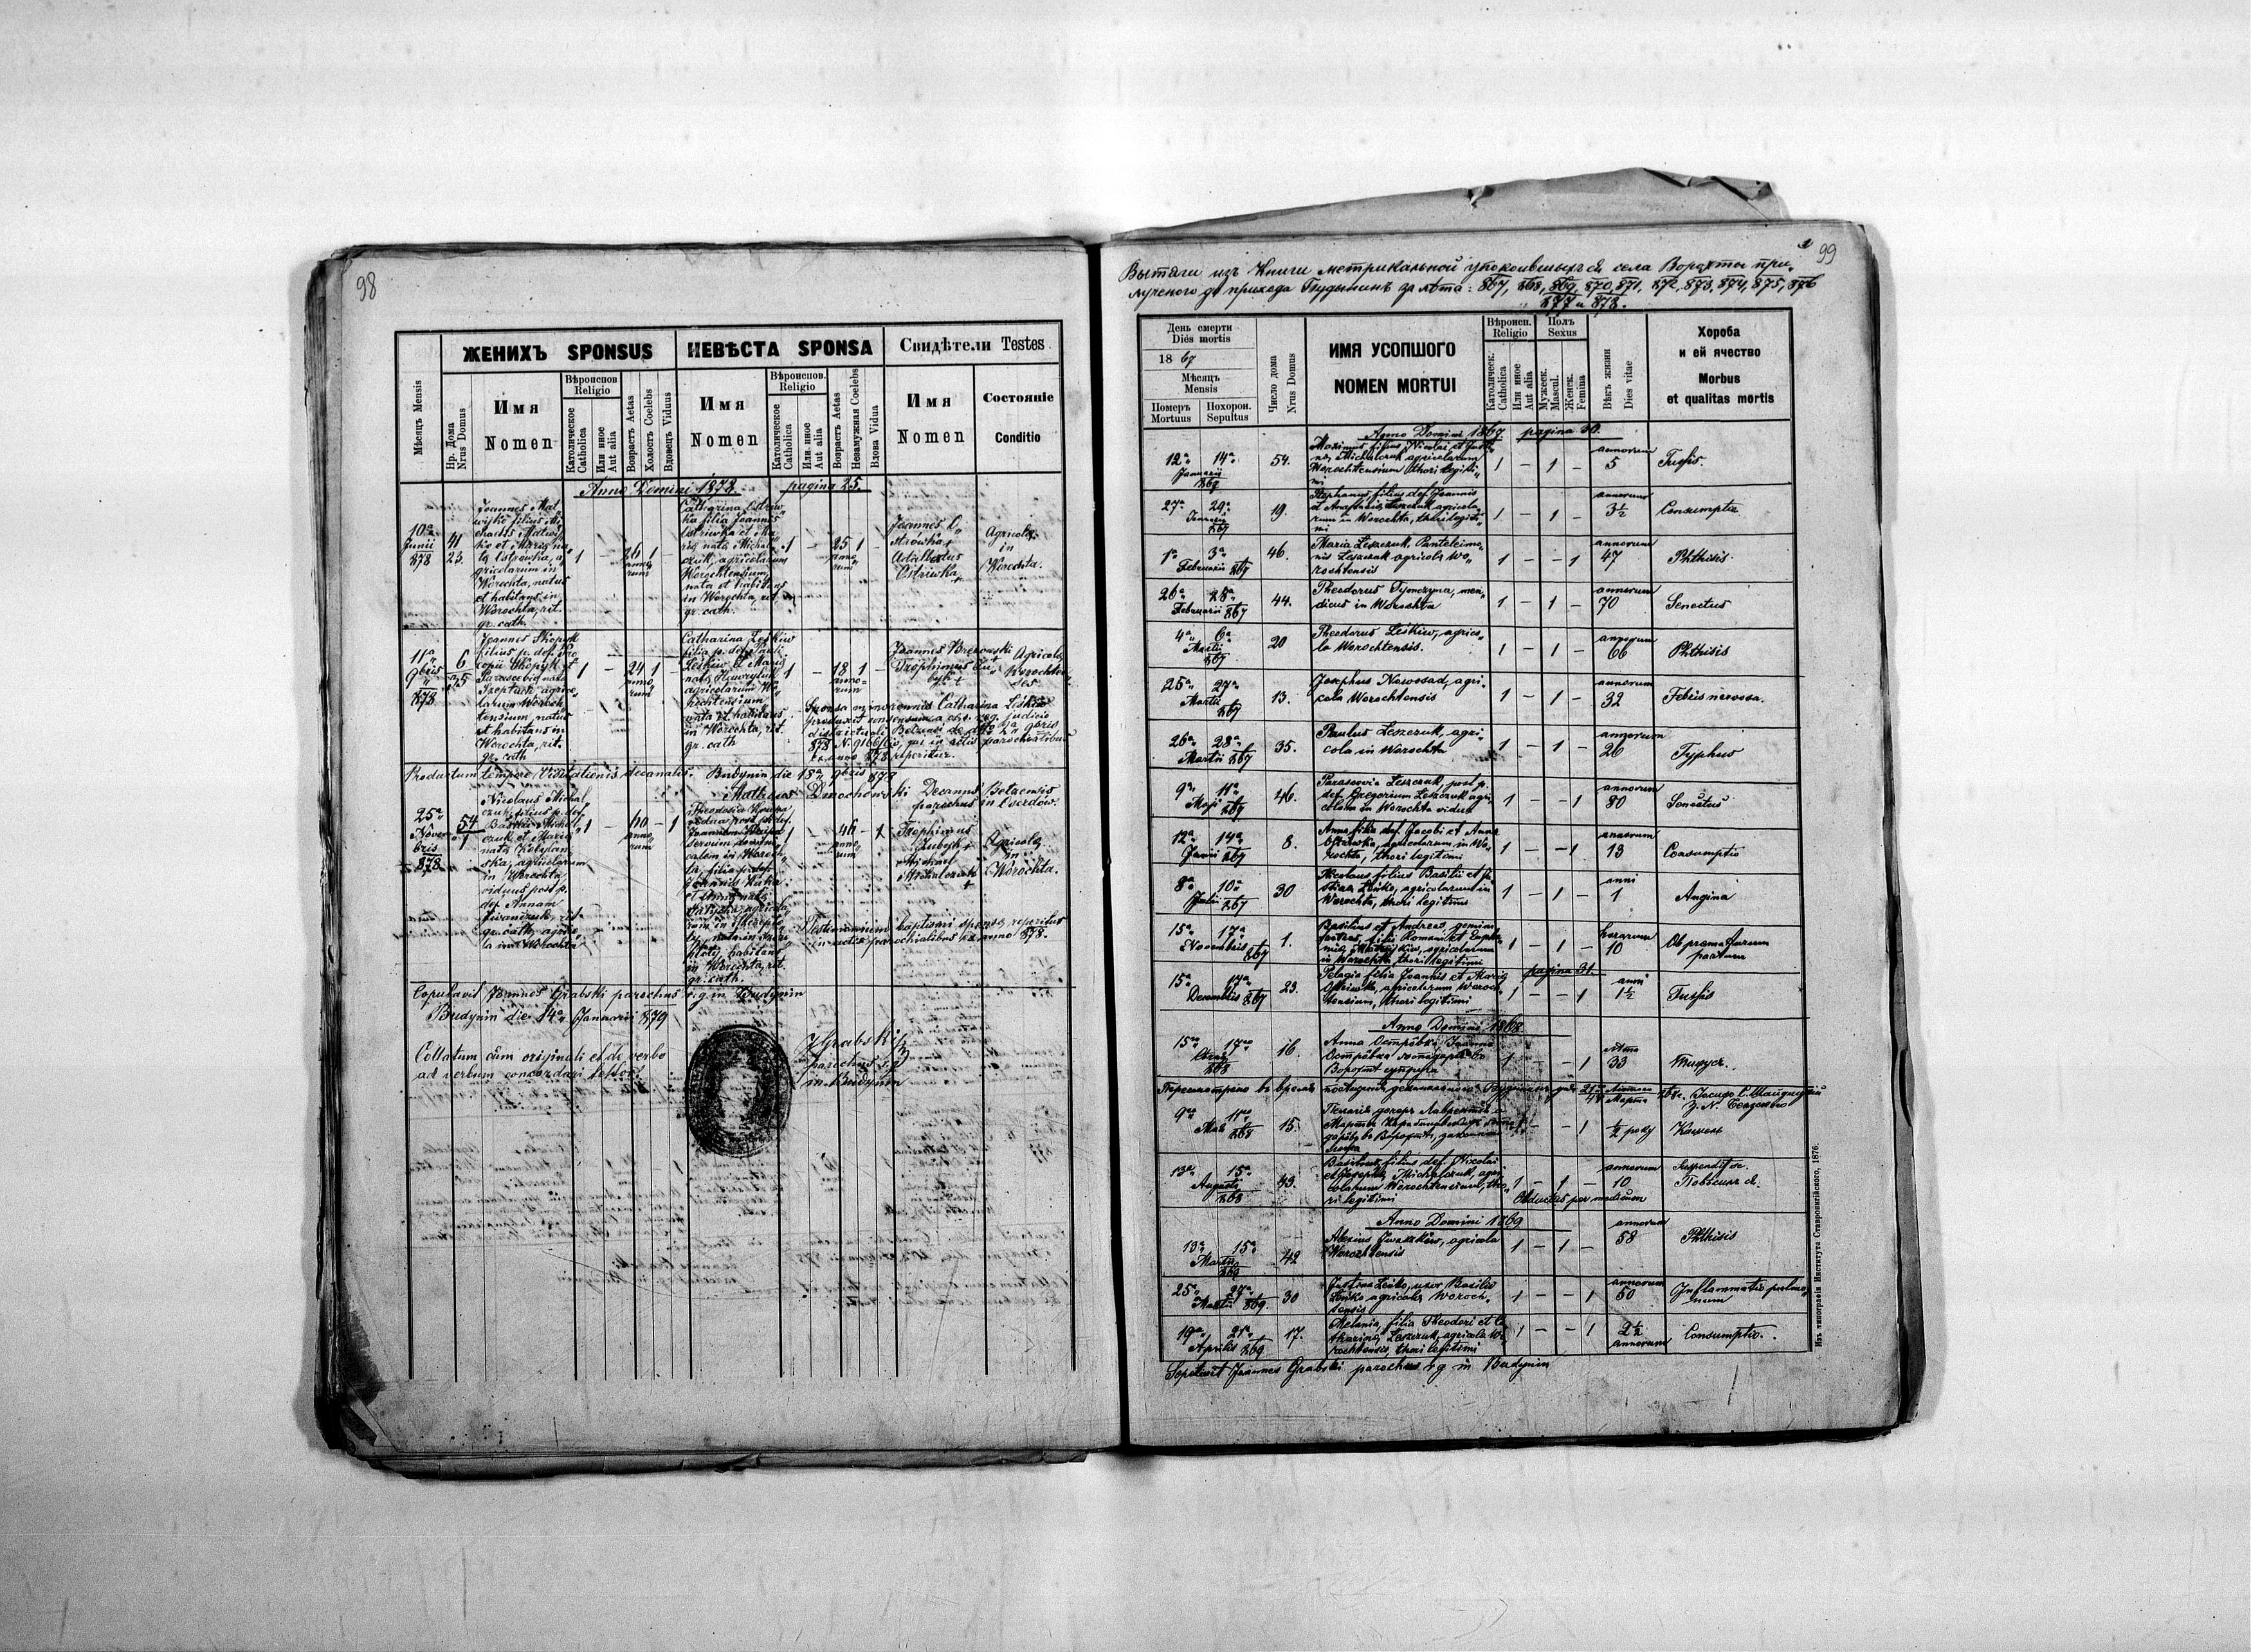 98
ЖЕНИХЪ SPONSUS
НЕВѢСТА SPONSA
Свидѣтели Testes
Мѣсяцъ Mensis
Нр. Дома
Nrus Domus
Имя
Nomen
Вѣроиспов.
Religio
Католическое
Catholica
Или иное
Aut alia
Возрастъ Aetas
Холостъ Coelebs
Вдовецъ Viduus
Имя
Nomen
Вѣроиспов.
Religio
Католическое
Catholica
Или иное
Aut alia
Возрастъ Aetas
Незамужная Coelebs
Вдова Vidua
Имя
Nomen
Состояніе
Conditio
Anno Domini 1878. pagina 25.
10a
Junii
878
41
23.
Joannes Mat
wijko filius Mi
chaelis Matwij
ko et Maria na
ta Ostrowka, a
gricolarum in
Worochta, natus
et habitans in
Worochta, rit.
gr. cath.
1
-
26
anno
rum
1
-
Catharina Ostriw
ka filia Joannis
Ostriwka et Ma
ria nata Michal
czuk, agricolarum
Worochtensium,
nata et habitans
in Worochta, rit.
gr. cath.
1
-
25
anno
rum
1
-
Joannes O
striwka +
Ostriwka +
Agricolae
in
Worochta.
11a
9bris
878
6
25
Joannes Skopyk
filius p. def. Pro
copii Skopyk et
Parascevia nata
agrico
larum Woroch
tensium, natus
et habitans in
Worochta, rit.
gr. cath.
1
-
24
anno
rum
1
-
Catharina Leśkiw
filia p. def. Pauli
Leśkiw et Maria
nata Hawryluk
agricolarum Wo
rochtensium,
nata et habitans
in Worochta, rit.
gr. cath
1
-
18
anno
rum
1
-
Joannes
Trophimus Łu
byk +
Agricolae
Worochten
ses
Sponsa minorennis Catharina Leśkiw
produxit consensum a ces. reg. judicio
districtuali Belzensi de dto 2a 9bris
878 N. 9166, qui in actis parochialibus
ex anno 878 reperitur.
Productum tempore Visitationis decanalis. Budynin die 18a 9bris 878
Mathias Decanus Belzensis
parochus in Oserdow.
25a
Novem
bris
878
54
7
Nicolaus Michal
czuk, filius p. def.
Basilii Michal
czuk et Maria
nata Kobylan
ska, agricolarum
in Worochta,
viduus post p.
def. Annam
rit.
gr. cath. agrico
la in Worochta
1
-
60
anno
rum
-
1
Theodosia
vidua post p. def.
Joannem
servum
calem in Woroch
ta, filia p. def.
Joannis
et Anna nata
agricola
rum in
habitans
in Worochta, rit.
gr. cath.
1
-
46
anno
rum
-
1
Trophimus
Łubyk +
Michael
Michalczuk
+
Agricolae
in
Worochta.
Testimonium baptismi sponsa reperitur
in actis parochialibus ex anno 878.
Copulavit Joannes Grabski parochus r. g. in Budynin
Budynin die 14a Januarii 879
Collatum cum originali et de verbo
ad verbum concordari testor.
J Grabski
parochus
in Budynin
99
Вытяги изъ Книги метрикальной упокоившихся села Ворохты при
лученого до прихода Будынинъ за лѣта: 867, 868, 869, 870, 871, 872, 873, 874, 875, 876
877 и 878.
День смерти
Diés mortis
18 67
Мѣсяцъ
Mensis
Померъ
Mortuus
Похорон.
Sepultus
Число дома
Nrus Domus
ИМЯ УСОПШОГО
NOMEN MORTUI
Вѣроисп.
Religio
Католическ.
Catholica
Или иное
Aut alia
Полъ
Sexus
Мужеск.
Mascul.
Женск.
Femina
Вѣкъ жизни
Dies vitae
Хороба
и ей ячество
Morbus
et qualitas mortis
Anno Domini 1867. pagina 30.
12a 14a
Januarii
867
54.
Maximus filius Nicolai et Justi
na Michalczuk agricolarum
Worochtensium thori legiti
mi
1 - 1 -
annorum
5
Tussis.
27a 29a
Januarii
867
19.
Stephanus, filius def. Joannis
et Anastasia Leszczuk agricola
rum in Worochta, thori legiti
mi
1 - 1 -
annorum
3½
Consumptio
1a 3a
Februarii 867
46.
Maria Leszczuk, Panteleimo
nis Leszczuk agricola Wo
rochtensis
1 - - 1
annorum
47
Phthisis.
26a 28a
Februarii 867
44.
Theodorus Tymczyna, men
dicus in Worochta
1 - 1 -
annorum
70
Senectus
4a 6a
Martii
867
20
Theodorus Leśkiw, agrico
la Worochtensis.
1 - 1 -
annorum
66
Phthisis
25a 27a
Martii
867
13.
Josephus Nowosad, agri
cola Worochtensis
1 - 1 -
annorum
32
Febris nervosa.
26a 28a
Martii 867
35.
Paulus Leszczuk, agri
cola in Worochta
1 - 1 -
annorum
26
Typhus
9a 11a
Maji 867
46.
Parascevia Leszczuk, post p.
def. Gregorium Leszczuk agri
colam in Worochta vidua
1 - - 1
annorum
80
Senectus
12a 14a
Junii 867
8.
Anna filia def. Jacobi et Anna
Ostriwka, agricolarum in Wo
rochta, thori legitimi
1 - - 1
annorum
13
Consumptio
8a 10a
Julii 867
30
Nicolaus filius Basilii et Ju
stina Leńko, agricolarum in
Worochta, thori legitimi
1 - 1 -
anni
1
Angina
15a 17a
Novembris 867
1.
Basilius et Andreas, gemini
fratres, filii Romani et Euphe
mia agricolarum
in Worochta thori legitimi
1 - 1 -
horarum
10
Ob praematurum
partum
pagina 31.
15a 17a
Decembris 867
23.
Pelagia filia Joannis et Maria
Ostriwka, agricolarum Woroch
tensium, thori legitimi
1 - - 1
anni
1½
Tussis
Anno Domini 1868.
15го 17го
868
16.
Анна Остріѵка Іоанна
Остріѵка господаря во
Ворохтѣ супруга
1 - - 1
лѣта
33
Тифусъ.
Пересмотрено въ время посѣщенія деканального
9го 11го
Мая 868
15.
Пелагія дочерь Лаврентія и
Марты
1 - - 1
½ року
Кашель
13a 15a
Augusti
868
43.
Basilius, filius def. Nicolai
et Josepha Michalczuk, agri
colarum Worochtensium, tho
ri legitimi
1 - 1 -
annorum
10
Suspendit se.
Повѣсилъ ся.
Obductus per medicum
Anno Domini 1869
13a 15a
Martii
869
42
Alexius agricola
Worochtensis
1 - 1 -
annorum
58
Phthisis
25a 27a
Martii 869
30
Justina Leńko, uxor Basilii
Leńko agricola Woroch
tensis
1 - - 1
annorum
50
Inflammatio pulmo
num
19a 21a
Aprilis 869
17.
Melania, filia Theodori et Ca
tharina Leszczuk, agricola Wo
rochtensis, thori legitimi
1 - - 1
2½
annorum
Consumptio.
Sepelivit Joannes Grabski parochus r g in Budynin
Изъ типографіи Института Ставропигійского, 1876.